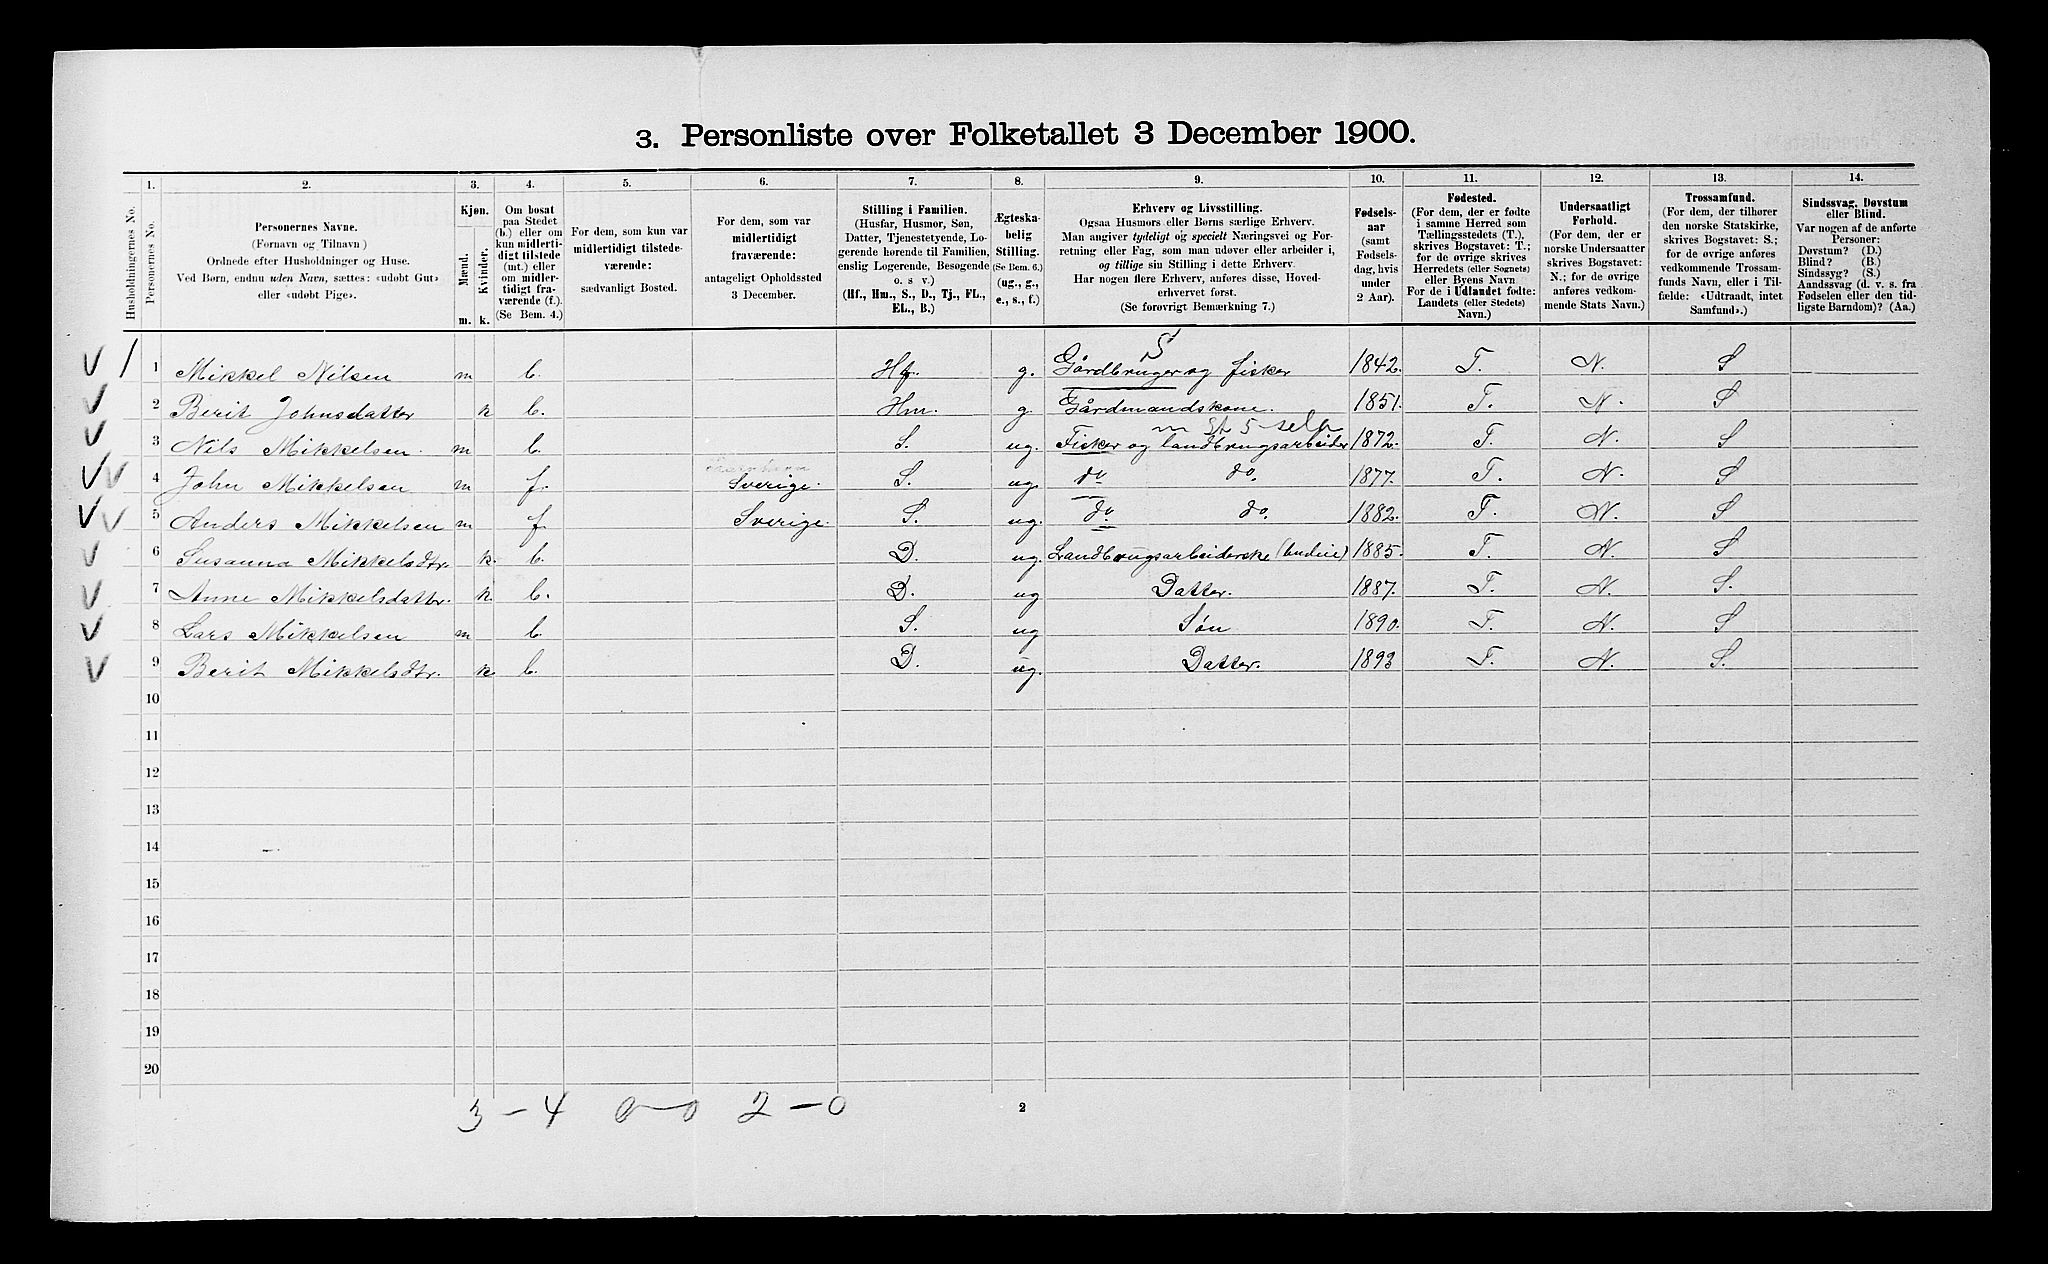 3. Personliste over Folketallet 3 December 1900.
1. 2. 3. 4. 5. 6. 7. 8. 9. 10. 11. 12. 13. 14.
Husholdningernes No.
Personernes No.
Personernes Navne.
(Fornavn og Tilnavn)
Ordnede efter Husholdninger og Huse.
Ved Børn, endnu uden Navn, sættes: «udøbt Gut»
eller «udøbt Pige».
Kjøn.
Mænd.
Kvinder.
m. k.
Om bosat
paa Stedet
(b.) eller om
kun midlerti-
digt tilstede
(mt.) eller
om midler-
tidigt fra-
værende (f.).
(Se Bem. 4.)
For dem, som kun var
midlertidigt tilstede-
værende:
sædvanligt Bosted.
For dem, som var
midlertidigt
fraværende:
antageligt Opholdssted
3 December.
Stilling i Familien.
(Husfar, Husmor, Søn,
Datter, Tjenestetyende, Lo-
gerende hørende til Familien,
enslig Logerende, Besøgende
o. s v.)
(Hf., Hm., S., D., Tj., FL.,
EL., B.)
Ægteska-
belig
Stilling.
(Se Bem. 6.)
(ug., g.,
e., s., f.)
Erhverv og Livsstilling.
Ogsaa Husmors eller Børns særlige Erhverv.
Man angiver tydeligt og specielt Næringsvei og For-
retning eller Fag, som man udøver eller arbeider i,
og tillige sin Stilling i dette Erhverv.
Har nogen flere Erhverv, anføres disse, Hoved-
erhvervet først.
(Se forøvrigt Bemærkning 7.)
Fødsels-
aar
(samt
Fødsels-
dag, hvis
under
2 Aar).
Fødested.
(For dem, der er fødte
i samme Herred som
Tællingsstedets (T.),
skrives Bogstavet: T.;
for de øvrige skrives
Herredets (eller Sognets)
eller Byens Navn
For de i Udlandet fødte:
Landets (eller Stedets)
Navn.)
Undersaatligt
Forhold.
(For dem, der er
norske Undersaatter
skrives Bogstavet:
N.; for de øvrige
anføres vedkom-
mende Stats Navn.)
Trossamfund.
(For dem, der tilhører
den norske Statskirke,
skrives Bogstavet: S.;
for de øvrige anføres
vedkommende Trossam-
funds Navn, eller i Til-
fælde: «Udtraadt, intet
Samfund».)
Sindssvag, Døvstum
eller Blind.
Var nogen af de anførte
Personer:
Døvstum? (D.)
Blind? (B.)
Sindssyg? (S.)
Aandssvag (d. v. s. fra
Fødselen eller den tid-
ligste Barndom)? (Aa.)
S
1 Mikkel Nilsen m b. Hf. g. Gårdbruger og fisker 1842. T. N. S
2 Berit Johnsdatter k b. Hm. g. Gårdmandskone. 1851. T. N. S
3 Nils Mikkelsen. m b. S. ug. Fisker og landbrugsarbeider 1872. T. N. S
4 John Mikkelsen m f. Sverige. S. ug. do do. 1877. T. N. S
5 Anders Mikkelsen m f. Sverige. S. ug. do. do. 1882. T. N. S
6 Susanna Mikkelsdtr. k. b. D. ug. Landbrugsarbeiderske 1885. T. N. S
7 Anne Mikkelsdatter. k. b. D. ug Datter. 1887. T. N. S.
8 Lars Mikkelsen m b. S. ug Søn 1890. T. N. S
9 Berit Mikkelsdtr. k. b. D. ug. Datter. 1893 T. N. S.
10
11
12
13
14
15
16
17
18
19
20
3 - 4 0 - 0 2 - 0
2